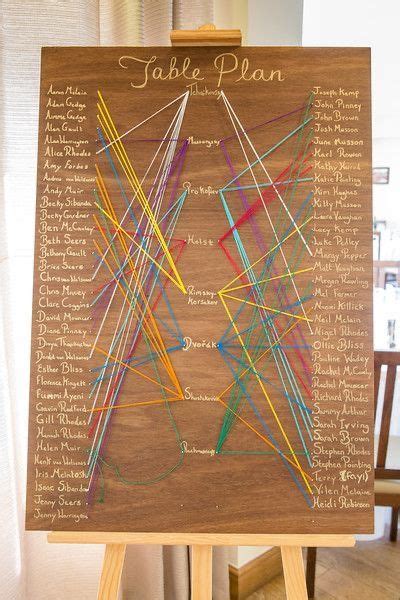 Table Plan
Aaron Milein
Adam Gedge
Aimme Gedge
Alan Gault
Alan Warrington
Alice Rhodes
Amy Forbes
Andrea van
Andy Muir
Becky Sibanda
Becky Gardner
Ben McCauley
Beth Seers
Bethany Gault
Brian Seers
Chris
Chris Macey
Clare Coggins
David Mouncer
Diane Pinney
Donald van
Esther Bliss
Florence
Funmi Ayeni
Gavin Radford
Gill Rhodes
Hannah Rhodes
Helen Muir
Henk van
Iris McIntosh
Isaac Sibanda
Jenny Seers
Jenny Warrington
Tchaikovsky
Mussorgsky
Prokofiev
Holst
Rimsky
Korsakov
Dvořák
Shostakovich
Rachmaninoff
Joseph Kemp
John Pinney
John Brown
Josh Musson
June Musson
Karl Rowen
Kathy
Katie Ponting
Kim Hughes
Kitty Musson
Laura Vaughan
Lucy Kemp
Luke Polley
Margy Pepper
Matt Vaughan
Megan Rawling
Mel Farmer
Neil Mclain
Nigel Rhodes
Ollie Bliss
Pauline Wadey
Rachel McCauley
Rachel Mouncer
Richard Rhodes
Sammy Arthur
Sarah Irving
Sarah Brown
Stephen Rhodes
Stephen Ponting
Terry (Fayi)
Vilen Mclaine
Heidi Robinson